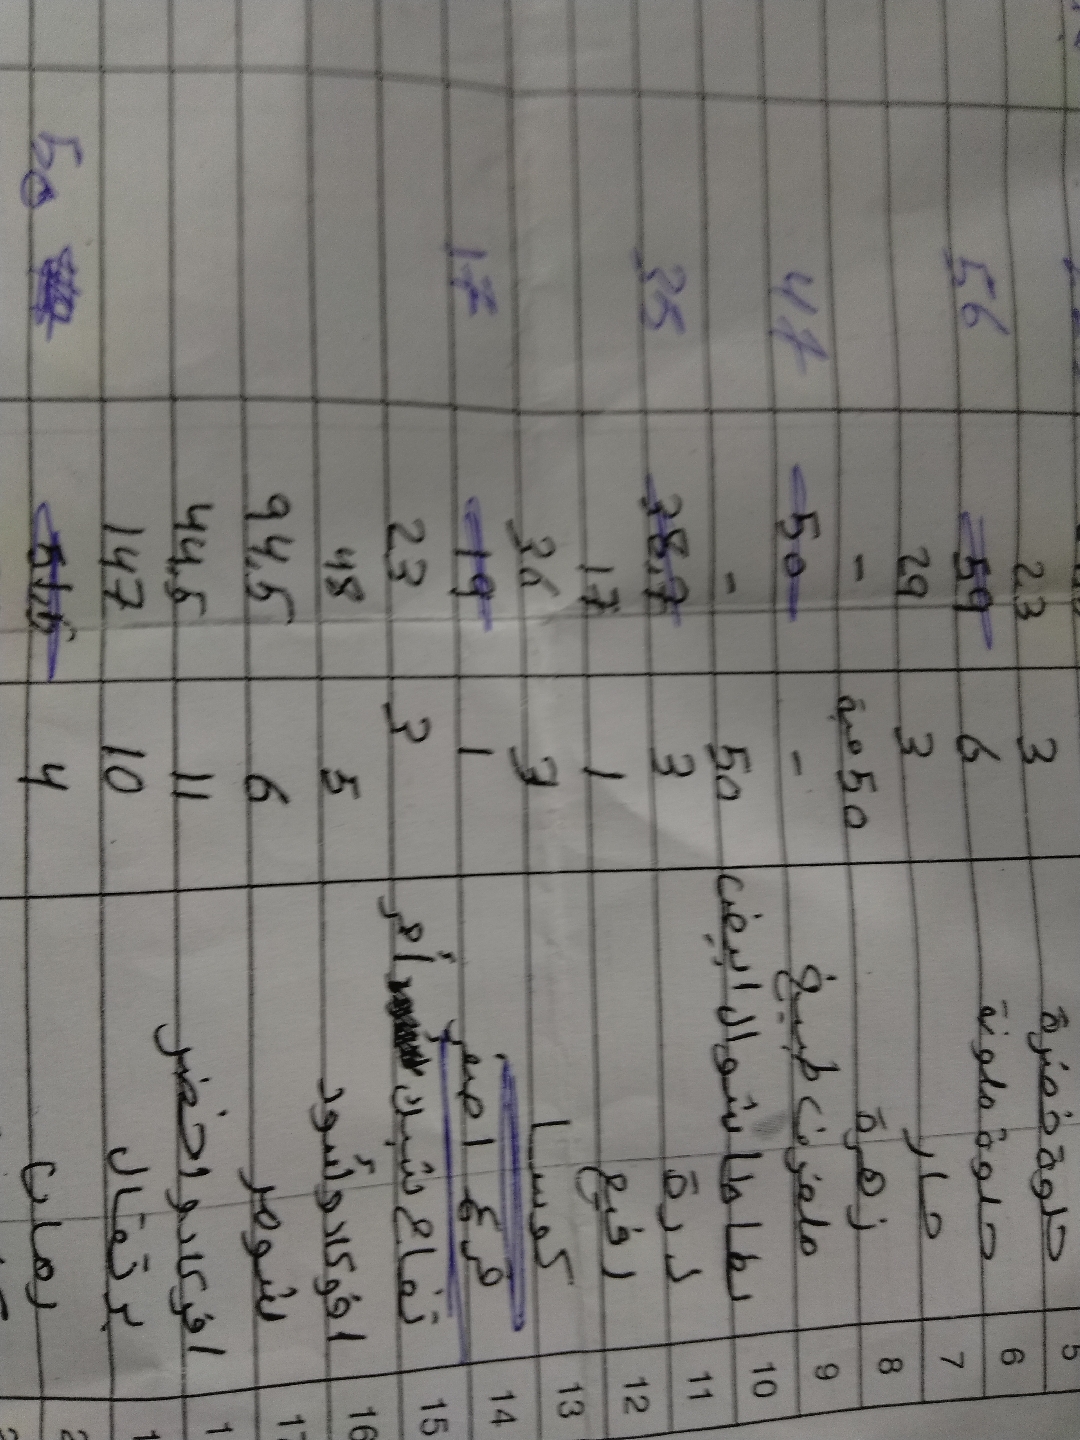 5 حلوة خضرة 3 23
6 حلوة ملونة 6 59 56
7 حار 3 29
8 زهرة 50 حبة -
9 ملفوف طبيخ - 50 47
10 بطاطا شوال ابيض 50 -
11 درة 3 38,7 35
12 رفيع 1 17
13 كوسا 3 36
14 قرع اصفر 1 19 17
15 تفاح أصفر 3 23
16 افوكادو أسود 5 48
شومر 6 94,5
افوكادو اخضر 11 44,5
برتقال 10 147
رمان 4 50